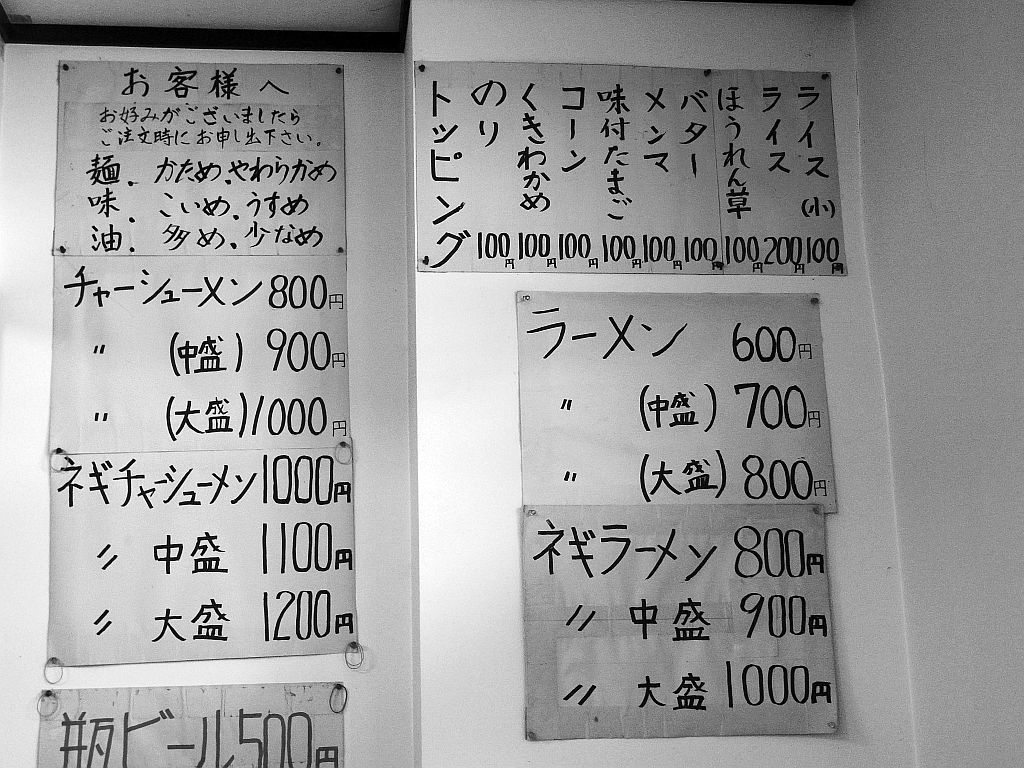 お客様へ
お好みがございましたら
ご注文時にお申し出下さい。
麺．かため、やわらかめ
味．こいめ、うすめ
油．多め、少なめ
チャーシューメン 800円
〃 (中盛) 900円
〃 (大盛) 1000円
ネギチャーシューメン 1000円
〃 中盛 1100円
〃 大盛 1200円
瓶ビール 500円
トッピング
のり 100円
くきわかめ 100円
コーン 100円
味付たまご 100円
メンマ 100円
バター 100円
ほうれん草 100円
ライス 200円
ライス(小) 100円
ラーメン 600円
〃 (中盛) 700円
〃 (大盛) 800円
ネギラーメン 800円
〃 中盛 900円
〃 大盛 1000円